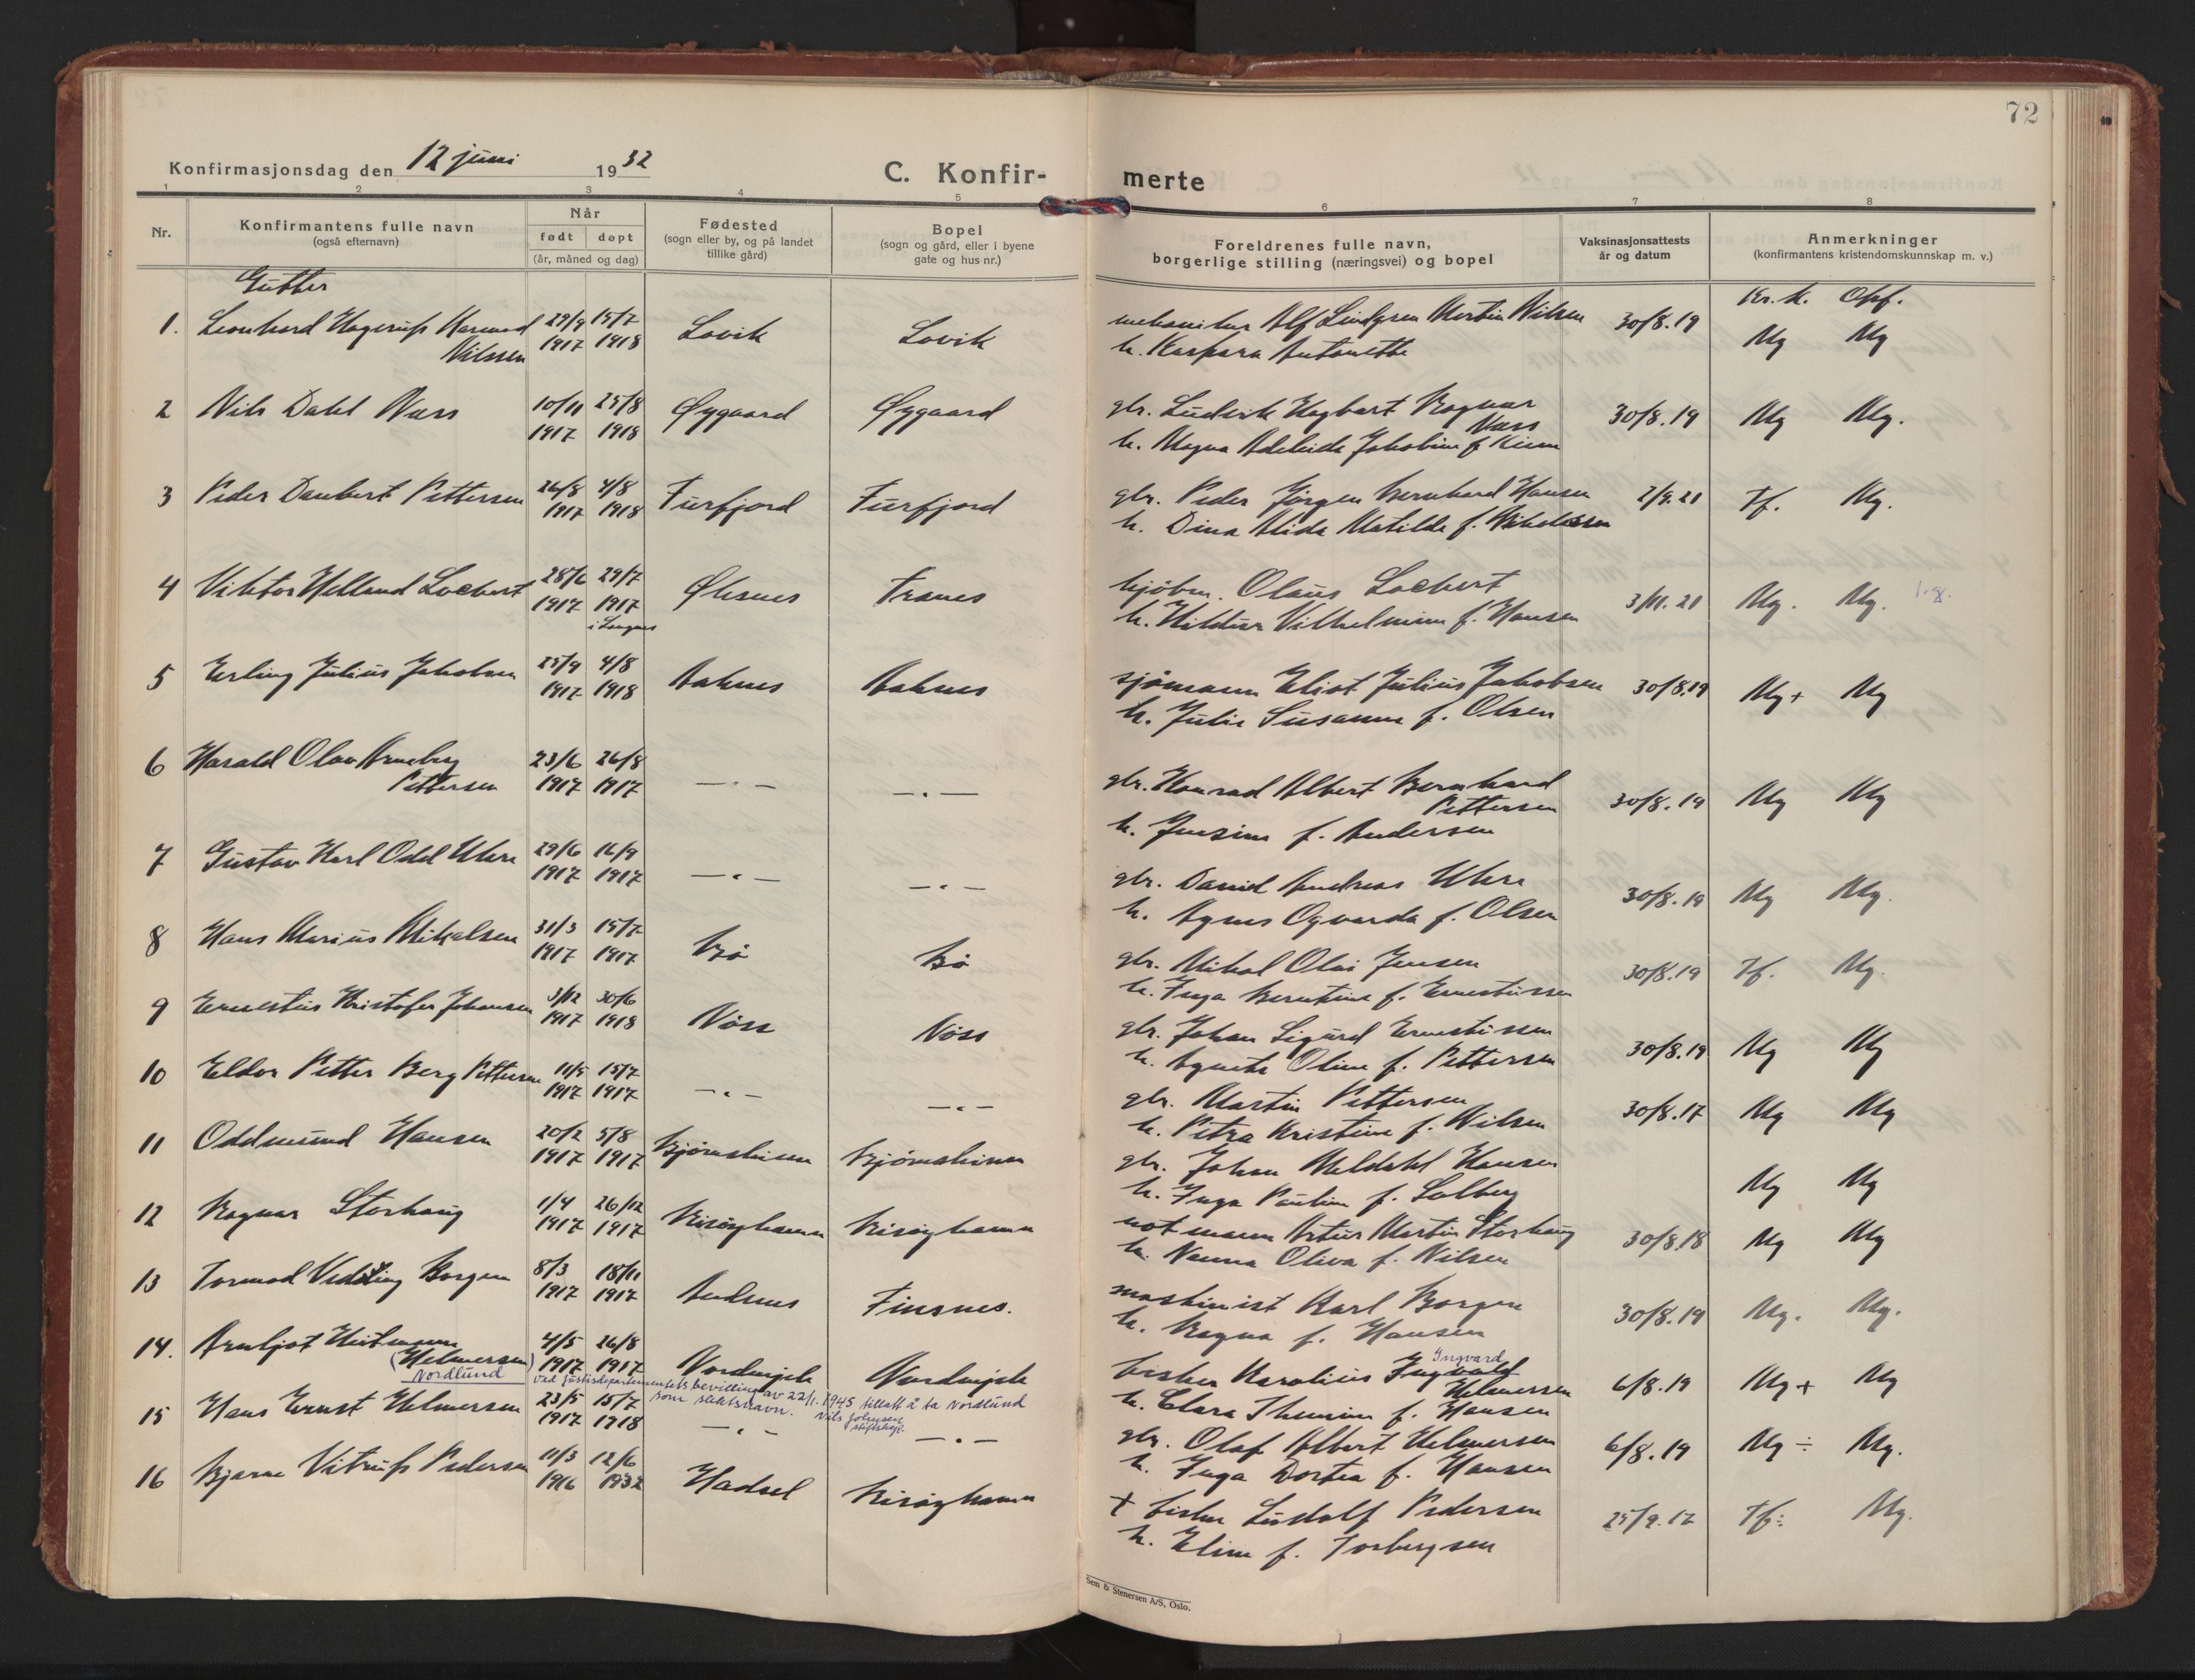 72
Konfirmasjonsdag den 12 juni 1932
C. Konfir-
merte
1 2 3 4 5 6 7 8
Nr.
Konfirmantens fulle navn
(også efternavn)
Når
født døpt
(år, måned og dag)
Fødested
(sogn eller by, og på landet
tillike gård)
Bopel
(sogn og gård, eller i byene
gate og hus nr.)
Foreldrenes fulle navn,
borgerlige stilling (næringsvei) og bopel
Vaksinasjonsattests
år og datum
Anmerkninger
(konfirmantens kristendomskunnskap m. v.)
Gutter
Kr. k. Opf.
1. Leonhard Hagerup 29/9 15/7 Lovik Lovik Alf Lindgren Martin Nilsen 30/8.19 Mg Mg
Nilssen 1917 1918 h. Kaspara Antonette
2 Nils Dahl Næss 10/11 25/8 Øygaard Øygaard gbr. Ludvik Hagbart Ragnar 30/8.19 Mg Mg.
1917 1918 Næss
h. Magna Adeleide Jakobine f.
3 Peder Daubert Pettersen 26/8 4/8 Furfjord Furfjord gbr. Peder Jørgen Bernhard Hansen 2/9.21 Tf. Mg.
1917 1918 h. Dina Alida Matilde f.
4 Viktor Helland Lockert 28/6 29/7 Øksnes Tranes kjøbm. Olaus Lockert 3/11.21 Mg. Mg.
1917 1917 h. Hildur Vilhelmine f. Hansen
i Langnes
5 Erling Julius Jakobsen 25/9 4/8 Aaknes Aaknes sjømann Eliot Julius Jakobsen 30/8.19 Mg+ Mg
1917 1918 h. Julie Susanne f. Olsen
6 Harald Olav Arneberg 23/6 26/8 —"— —"— gbr. Konrad Albert Bernhard 30/8.19 Mg Mg
Pettersen 1917 1917 Pettersen
h. Jensine f. Andersen
7 Gustav Karl Odd Uhre 29/6 16/9 —"— —"— gbr. David Andreas Uhre 30/8.19 Mg Mg.
1917 1917 h. Agnes Ovarda f. Olsen
8 Hans Marius Mikalsen 31/3 15/7 Bø Bø gbr. Mikal Olai Jensen 30/8.19 Tf. Mg.
1917 1917 h. Inga Berntine f. Ernestussen
9 Ernestus Kristofer Johansen 3/12 30/6 Nøss Nøss gbr. Johan Sigurd Ernestussen 30/8.19 Mg Mg
1917 1918 h. Agneta Oline f. Pettersen
10 Eldor Petter Berg Pettersen 11/5 15/7 —"— —"— gbr. Martin Pettersen 30/8.17 Mg Mg
1917 1917 h. Petra Kristine f. Nilsen
11 Oddmund Hansen 20/2 5/8 Bjørnskinn Bjørnskinn gbr. Johan Meldahl Hansen Mg Mg
1917 1917 h. Inga Pauline f. Solberg
12 Ragnar Storhaug 1/4 26/12 Risøyhamn Risøyhamn notmann Artur Martin Storhaug 30/8.18 Mg Mg
1917 1917 h. Nanna Oliva f. Nilsen
13 Tormod Borgen 8/3 18/11 Andenes Finsnes. maskinist Karl Borgen 30/8.19 Mg. Mg.
1917 1917 h. Ragna f. Hansen
14. Arnljot Heitmann 4/5 26/8 Nordmjele Nordmjele fisker Karolius Ingvald 6/8.19 Mg+ Mg
Ingvard
(Helmersen) 1917 1917 Helmersen
Nordlund h. Clara f. Hansen
Ved Justisdepartementets bevilling av 22/1.1945 tillatt å ta Nordlund
som slektsnavn. Nils Johnsen
15 Hans Ernst Helmersen 23/5 15/7 —"— —"— gbr. Olaf Albert Helmersen 6/8.19 Mg ÷ Mg.
1917 1918 h. Inga Dortea f. Hansen
16 Bjarne Vitrup Pedersen 11/3 12/6 Hadsel Risøyhamn + fisker Ludolf Pedersen 25/9.17 Tf÷ Mg.
1916 1932 h. Eline f. Torbergsen
Sem & Stenersen A/S, Oslo.